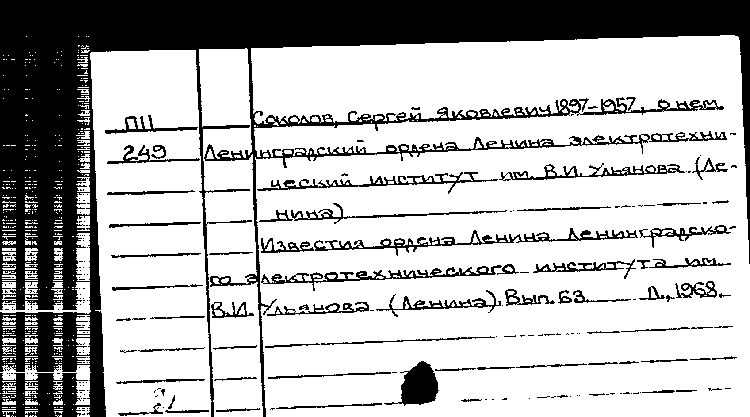 П11 Соколов, Сергей Яковлевич 1897-1957, о нем.
249 Ленинградский ордена Ленина электротехни-
ческий институт им. В.И. Ульянова (Ле-
нина)
Известия ордена Ленина Ленинградско-
го электротехнического института им.
В.И. Ульянова (Ленина). Вып. 63. Л., 1968.